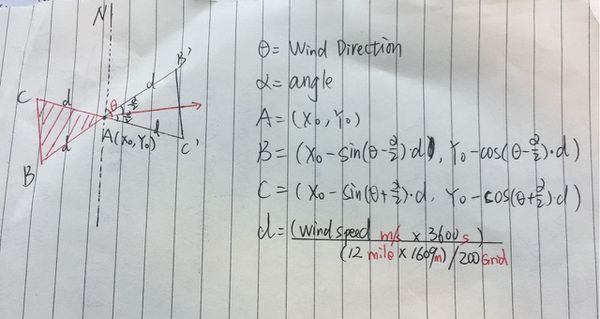 N
B'
d
θ
α/2
α/2
C
d
d
d
A(X₀,Y₀)
C'
B
θ = Wind Direction
α = angle
A = (X₀, Y₀)
B = (X₀ - sin(θ - α/2)·d), Y₀ - cos(θ - α/2)·d)
C = (X₀ - Sin(θ + α/2)·d, Y₀ - cos(θ + α/2)·d)
d = (wind speed m/s x 3600 s) / (12 mile x 1609m)/200 Grid